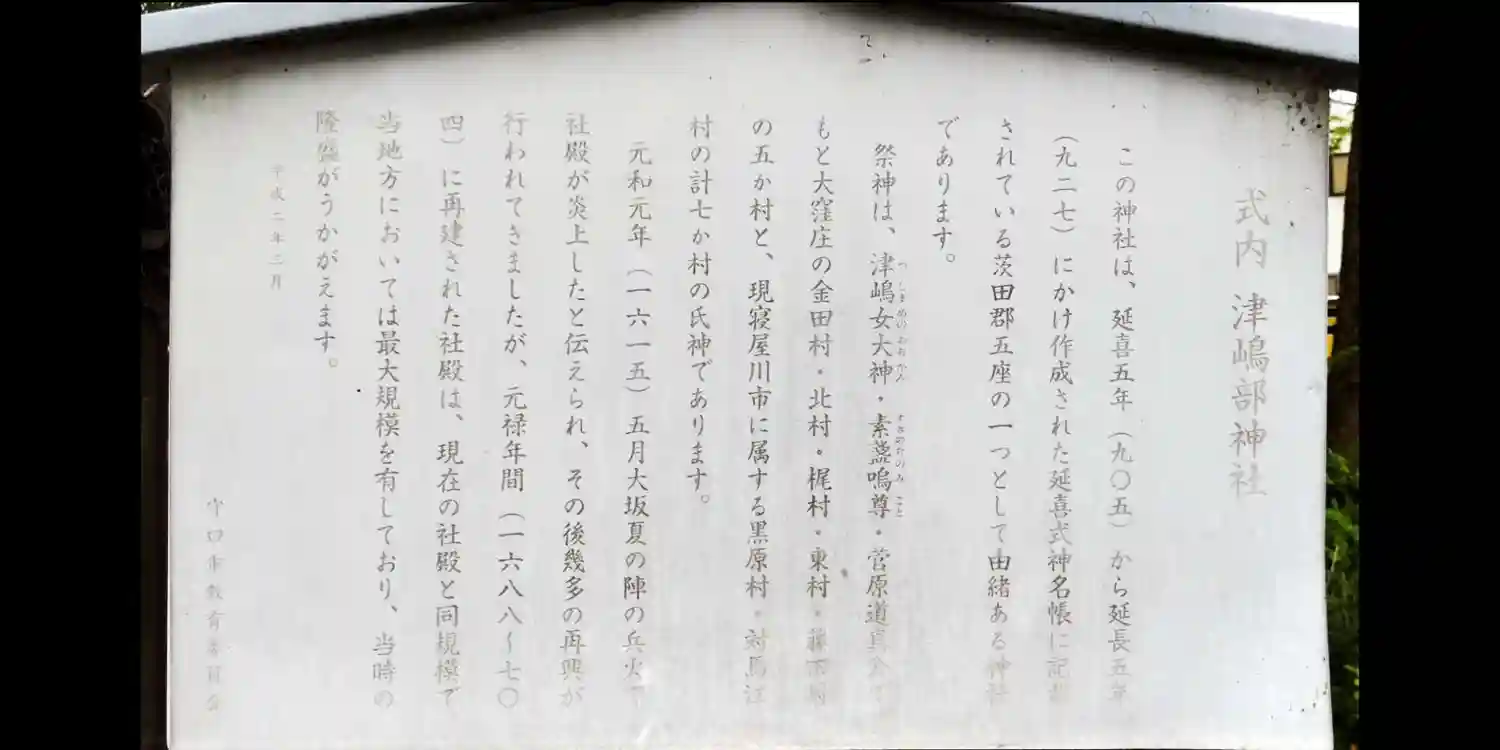 式内 津嶋部神社
この神社は、延喜五年(九〇五)から延長五年
(九二七)にかけ作成された延喜式神名帳に記載
されている茨田郡五座の一つとして由緒ある神社
であります。
祭神は、津嶋女大神・素盞嗚尊・菅原道真公で
もと大窪庄の金田村・北村・梶村・東村・藤田村
の五か村と、現寝屋川市に属する黒原村・対馬江
村の計七か村の氏神であります。
元和元年(一六一五)五月大坂夏の陣の兵火で
社殿が炎上したと伝えられ、その後幾多の再興が
行われてきましたが、元禄年間(一六八八〜七〇
四)に再建された社殿は、現在の社殿と同規模で
当地方においては最大規模を有しており、当時の
隆盛がうかがえます。
平成二年二月
守口市教育委員会